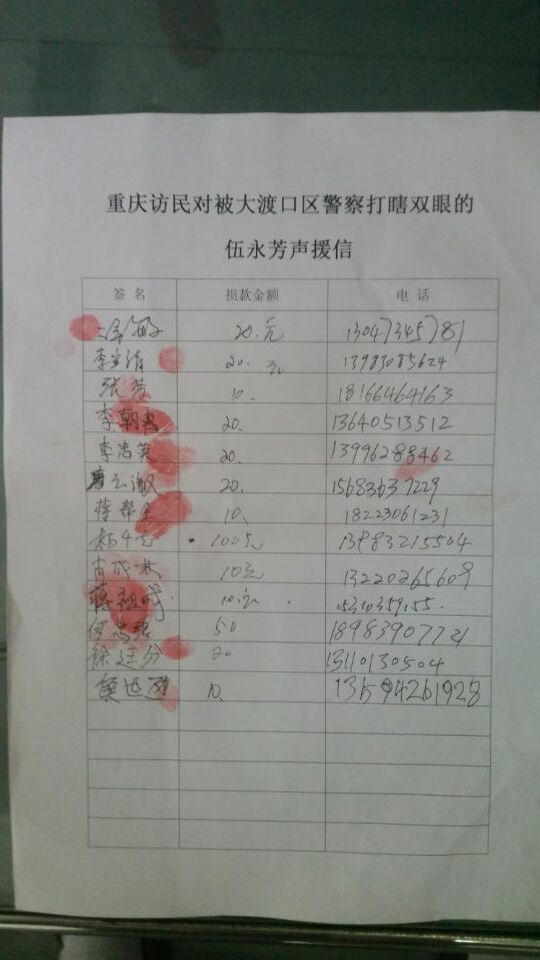 重庆访民对被大渡口区警察打瞎双眼的
伍永芳声援信
签名 损款金额 电话
20.元 13047345781
李 20.元 13983085624
张 10. 18166464163
李朝 20. 13640513512
李忠英 20. 13996288462
20. 15683637229
蒋帮 10. 18223061231
杨 100元 13983215504
肖成 10元 13220265609
蒋祖 10元 15310359155.
何 50 18983907721
徐廷分 20 13110130504
10. 13594261928